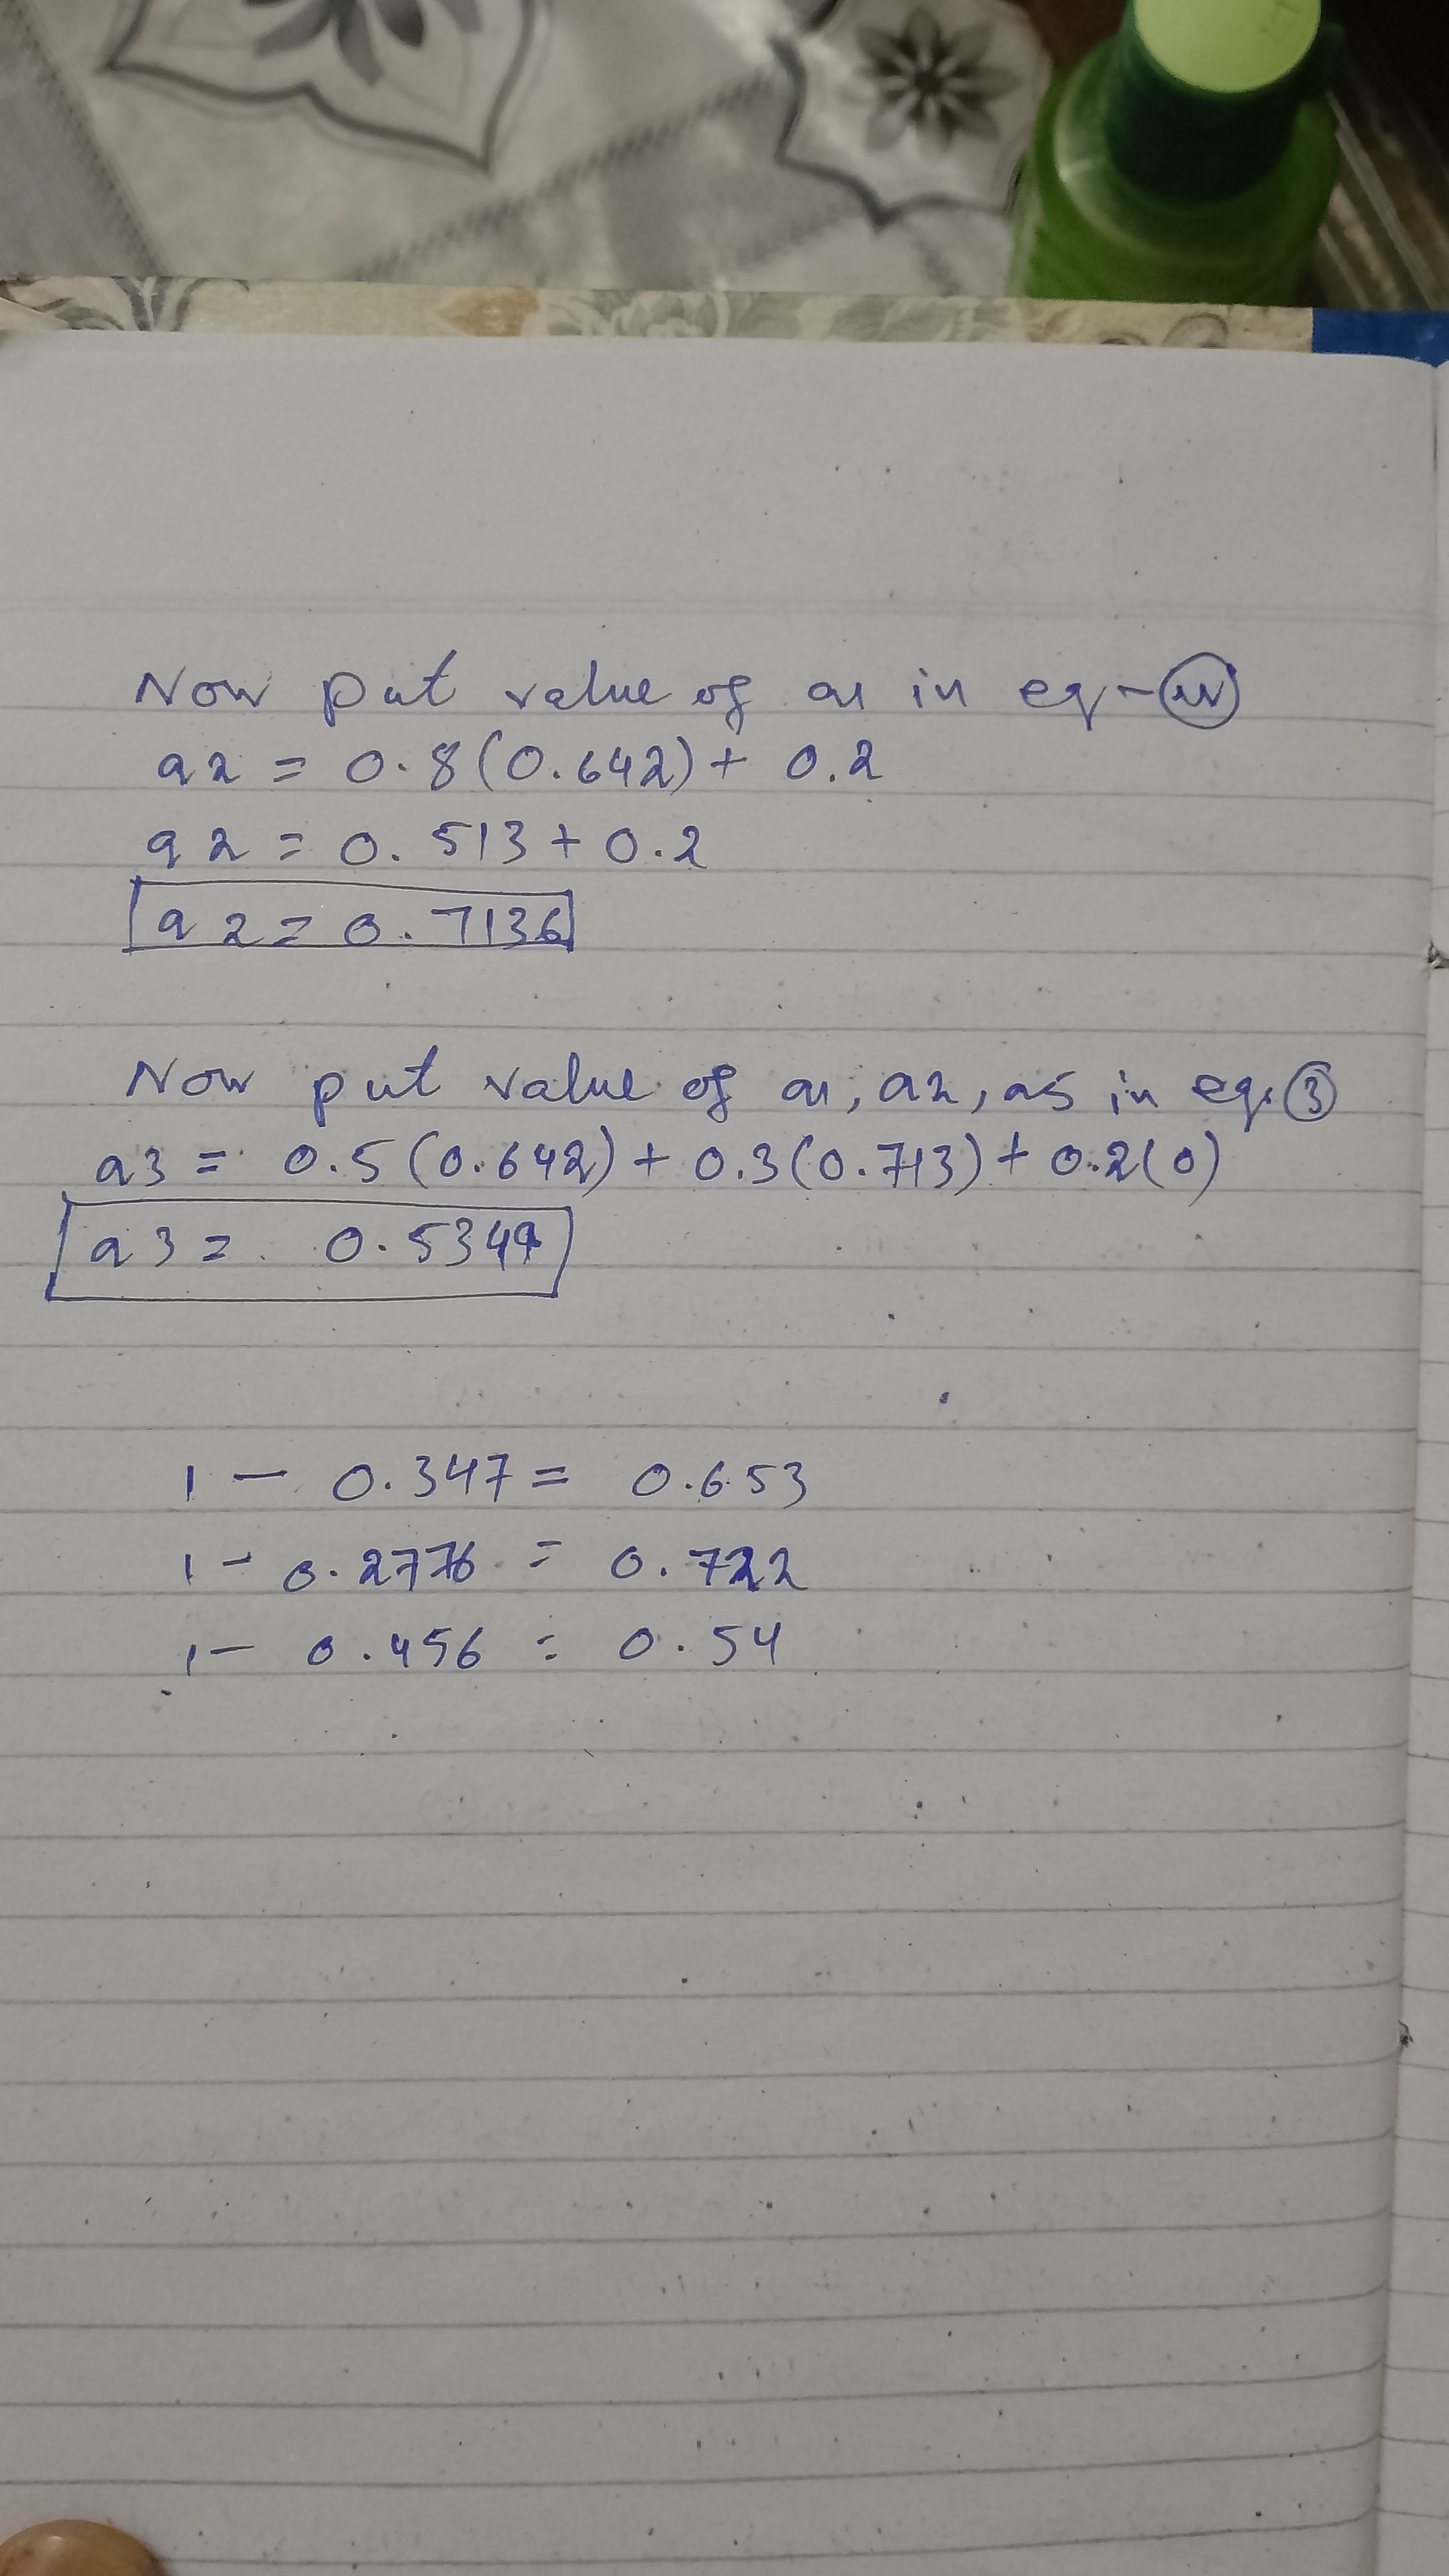 Now put value of a1 in eq-(iv)
a2 = 0.8(0.642)+ 0.2
a2 = 0.513+0.2
a2 = 0.7136
Now put value of a1, a2, a5 in eq. 3
a3 = 0.5(0.642)+ 0.3(0.713)+ 0.2(0)
a3 = 0.5349
1 - 0.347 = 0.653
1 - 0.2776 = 0.722
1 - 0.456 = 0.54